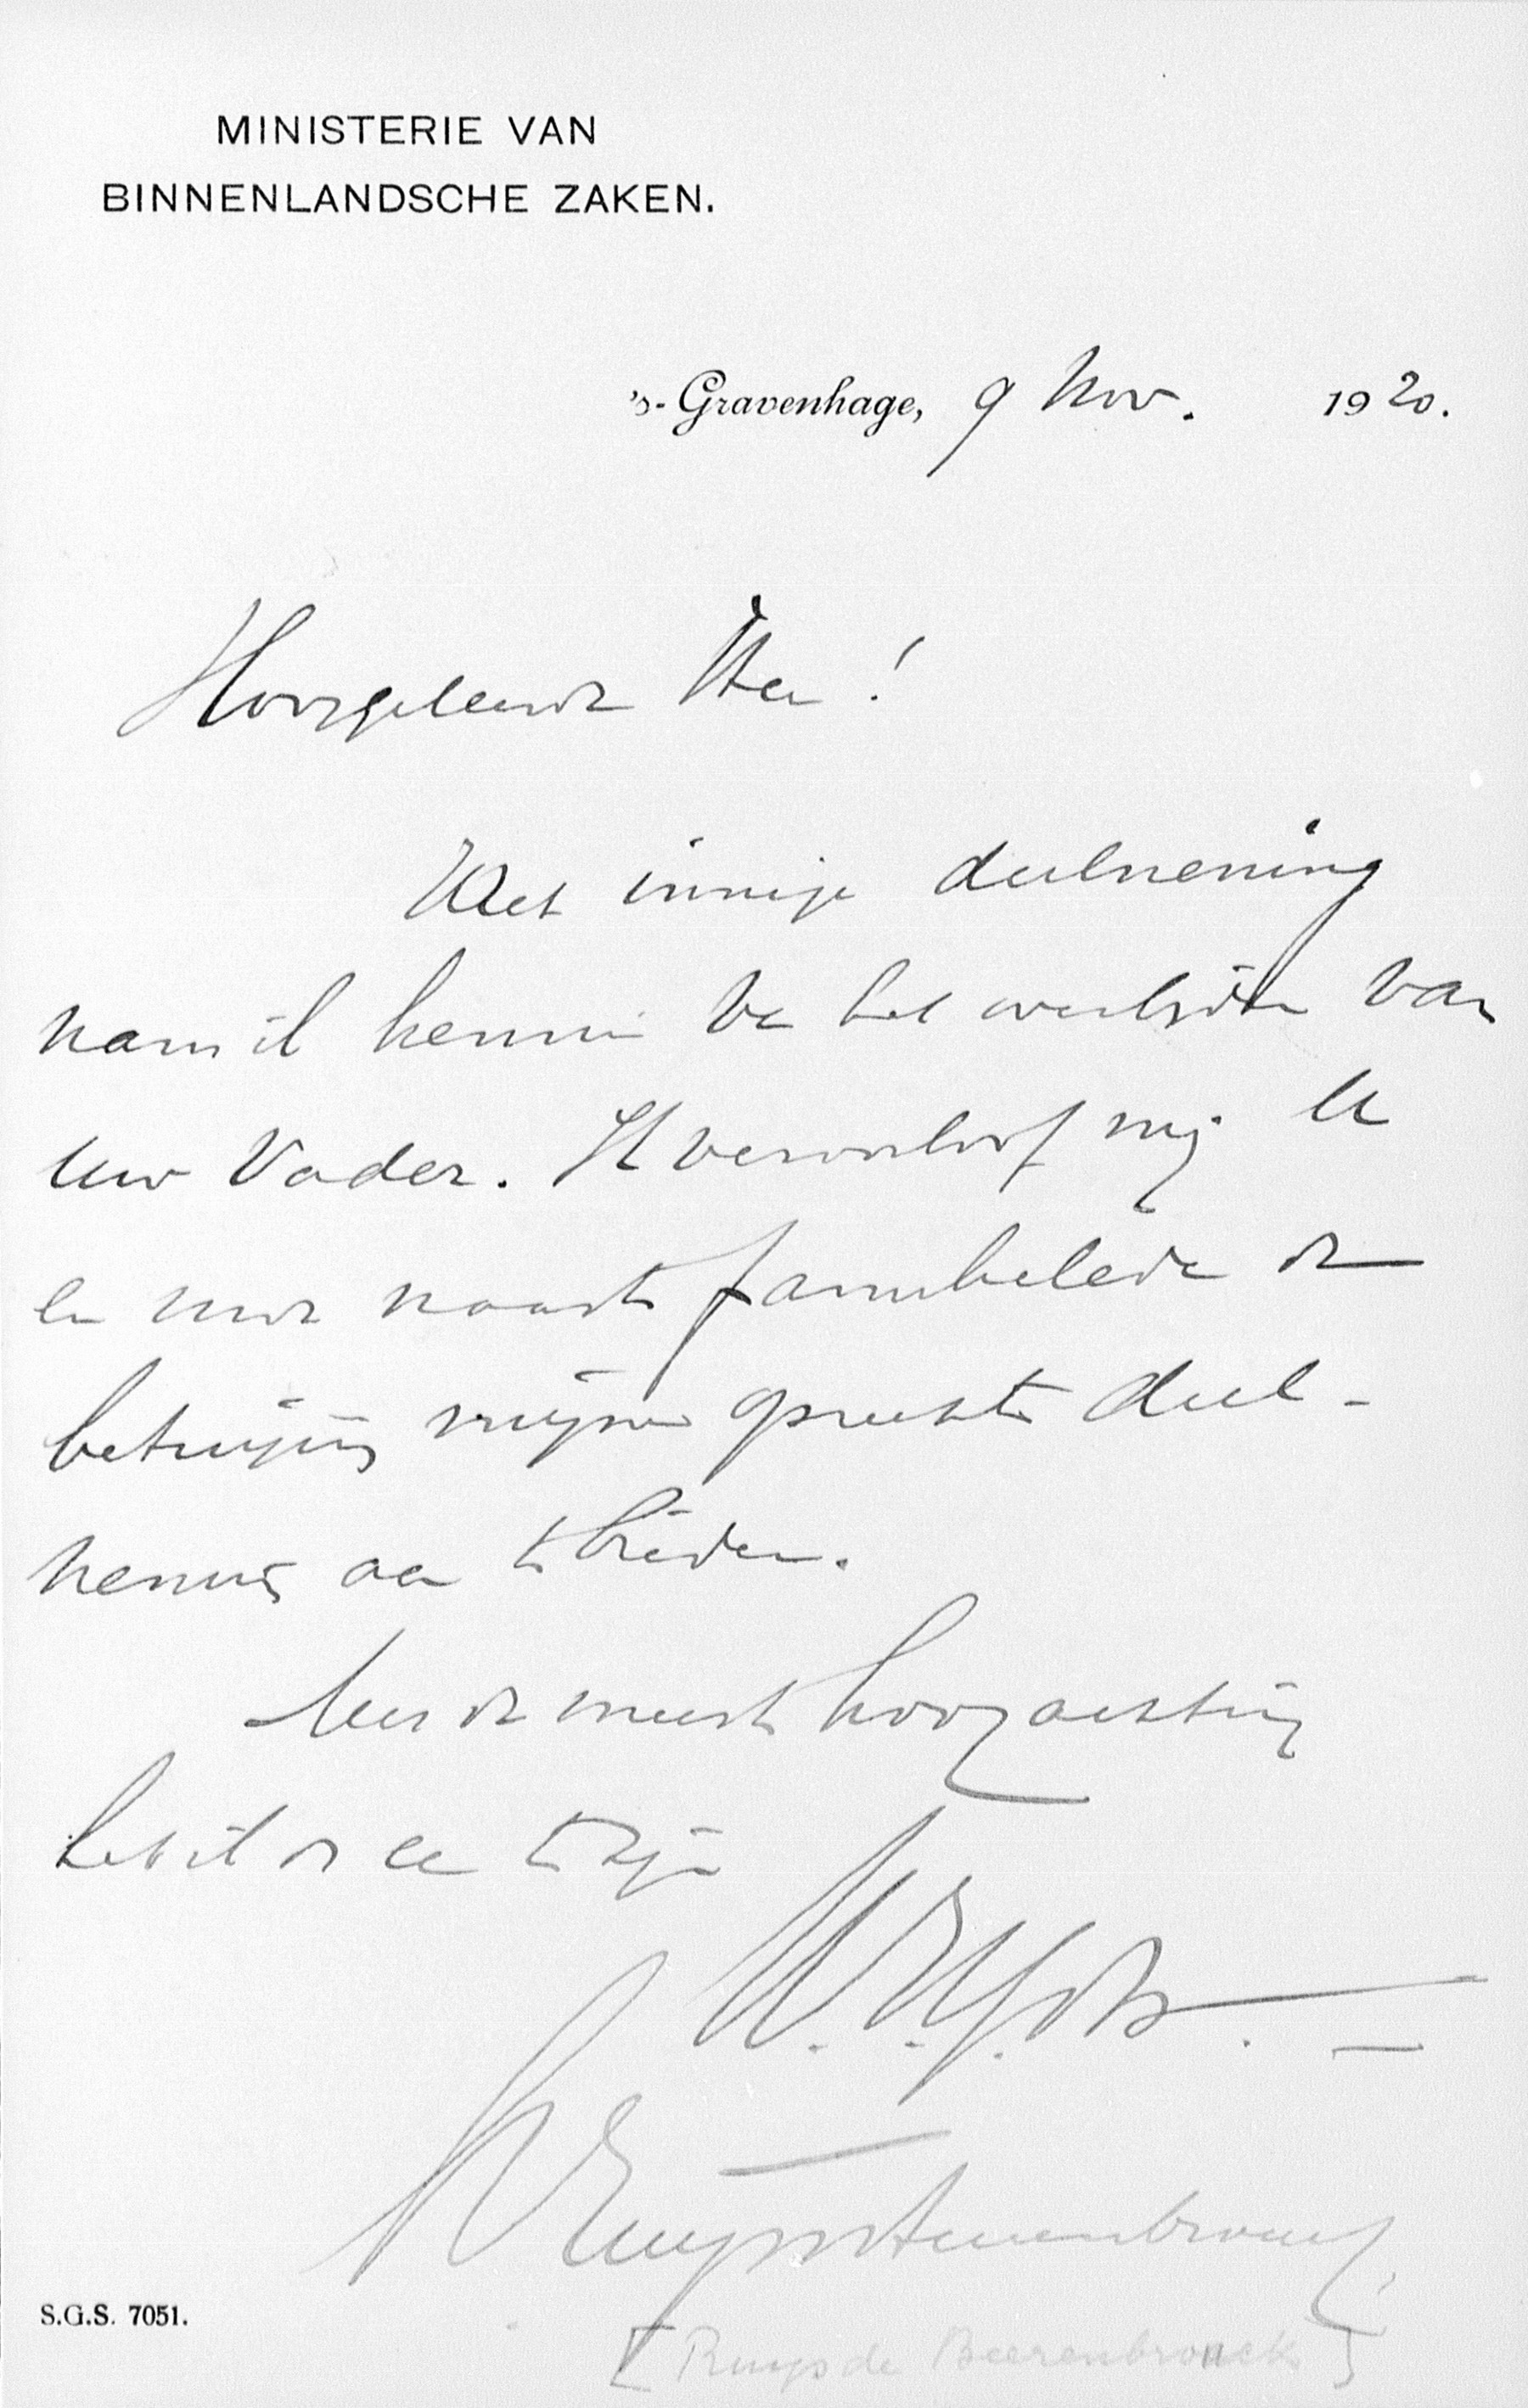 MINISTERIE VAN
BINNENLANDSCHE ZAKEN.
's-Gravenhage, 9 Nov. 1920.
Hooggeleerde Heer!
Met innige deelneming
nam ik kennis van het overlijden van
Uw Vader. Ik veroorloof mij U
en uwe naaste familieleden de
betuiging mijner oprechte deel-
neming aan te bieden.
Met de meeste hoogachting
heb ik de eer te zijn
Ruys de Beerenbrouck
S.G.S. 7051.
[Ruys de Beerenbrouck]